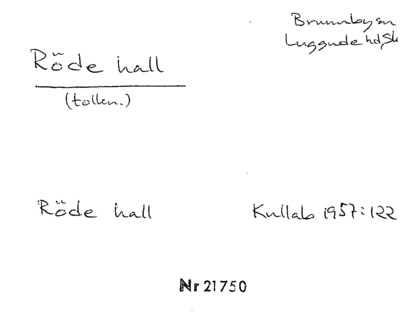 Brunnby sn
Luggude hd, Sk
Röde hall
(tolkn.)
Röde hall Kullab 1957:122
Nr 21750